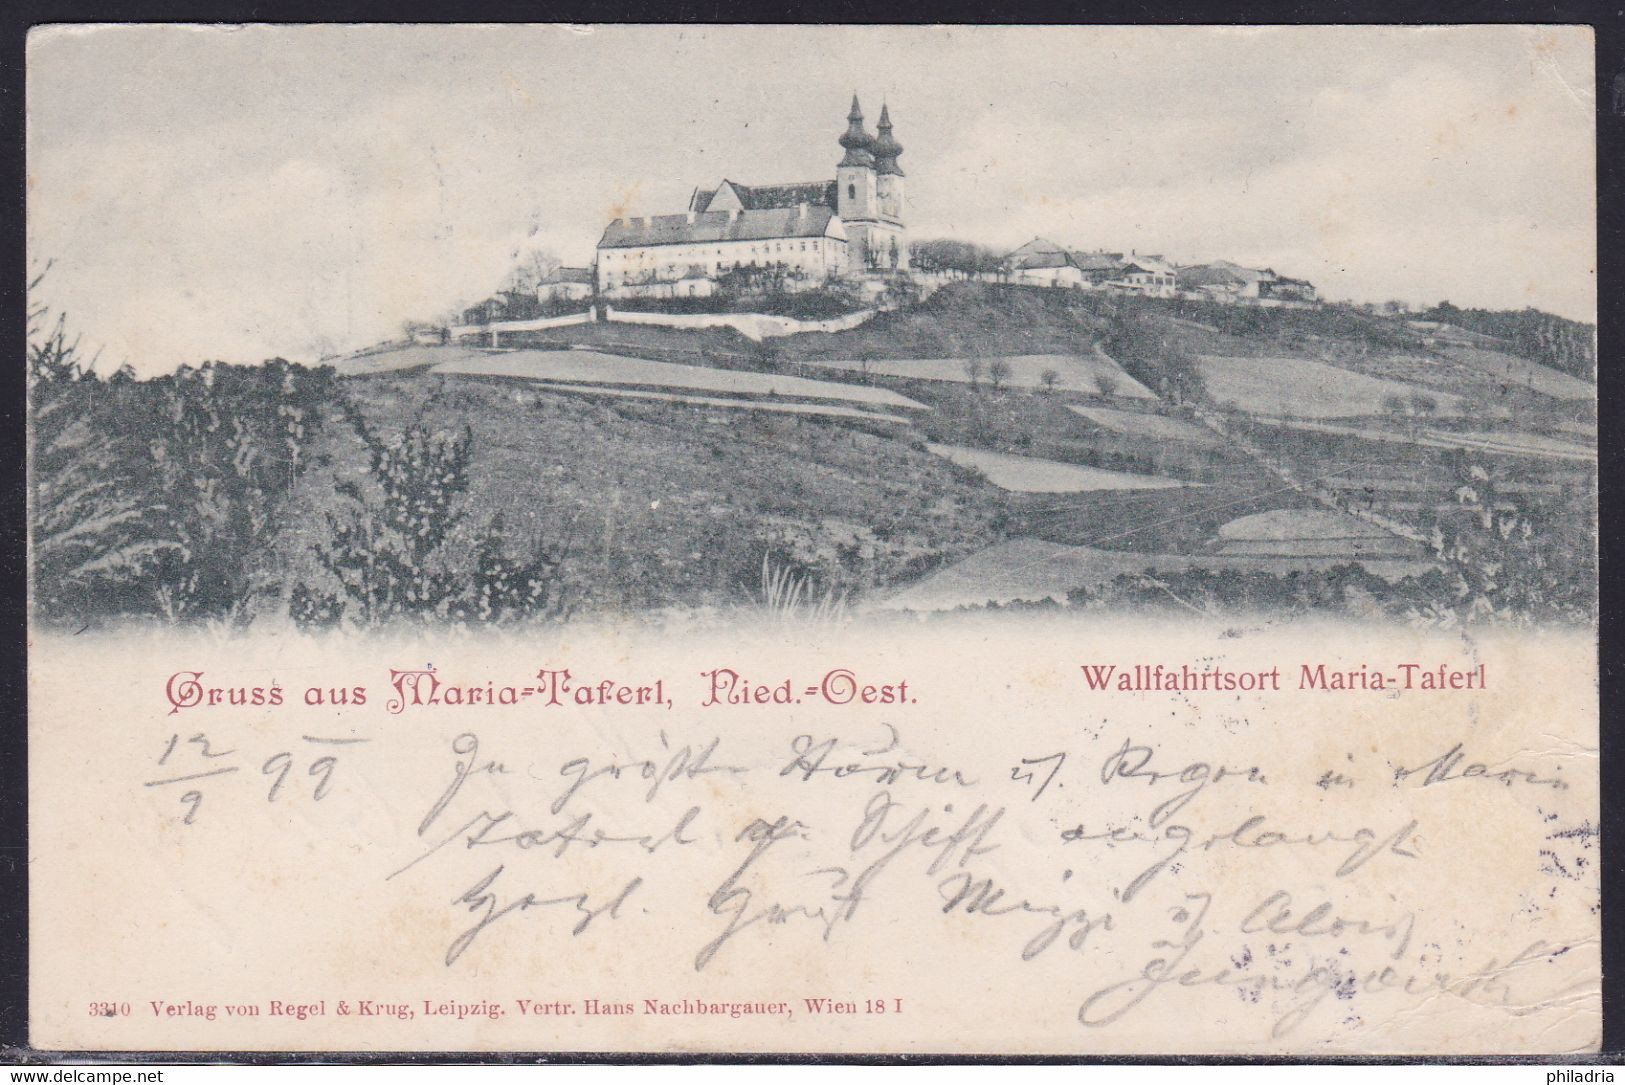 Gruss aus Maria-Taferl, Nied.-Oest.
Wallfahrtsort Maria-Taferl
12/9 99
In größte Sturm u. Regen in Maria
Taferl p. Schiff angelangt
Herzl. Gruß Mizzi u. Alois
Jungwirth
3310 Verlag von Regel & Krug, Leipzig. Vertr. Hans Nachbargauer, Wien 18 I
12
delcampe.net
philadria